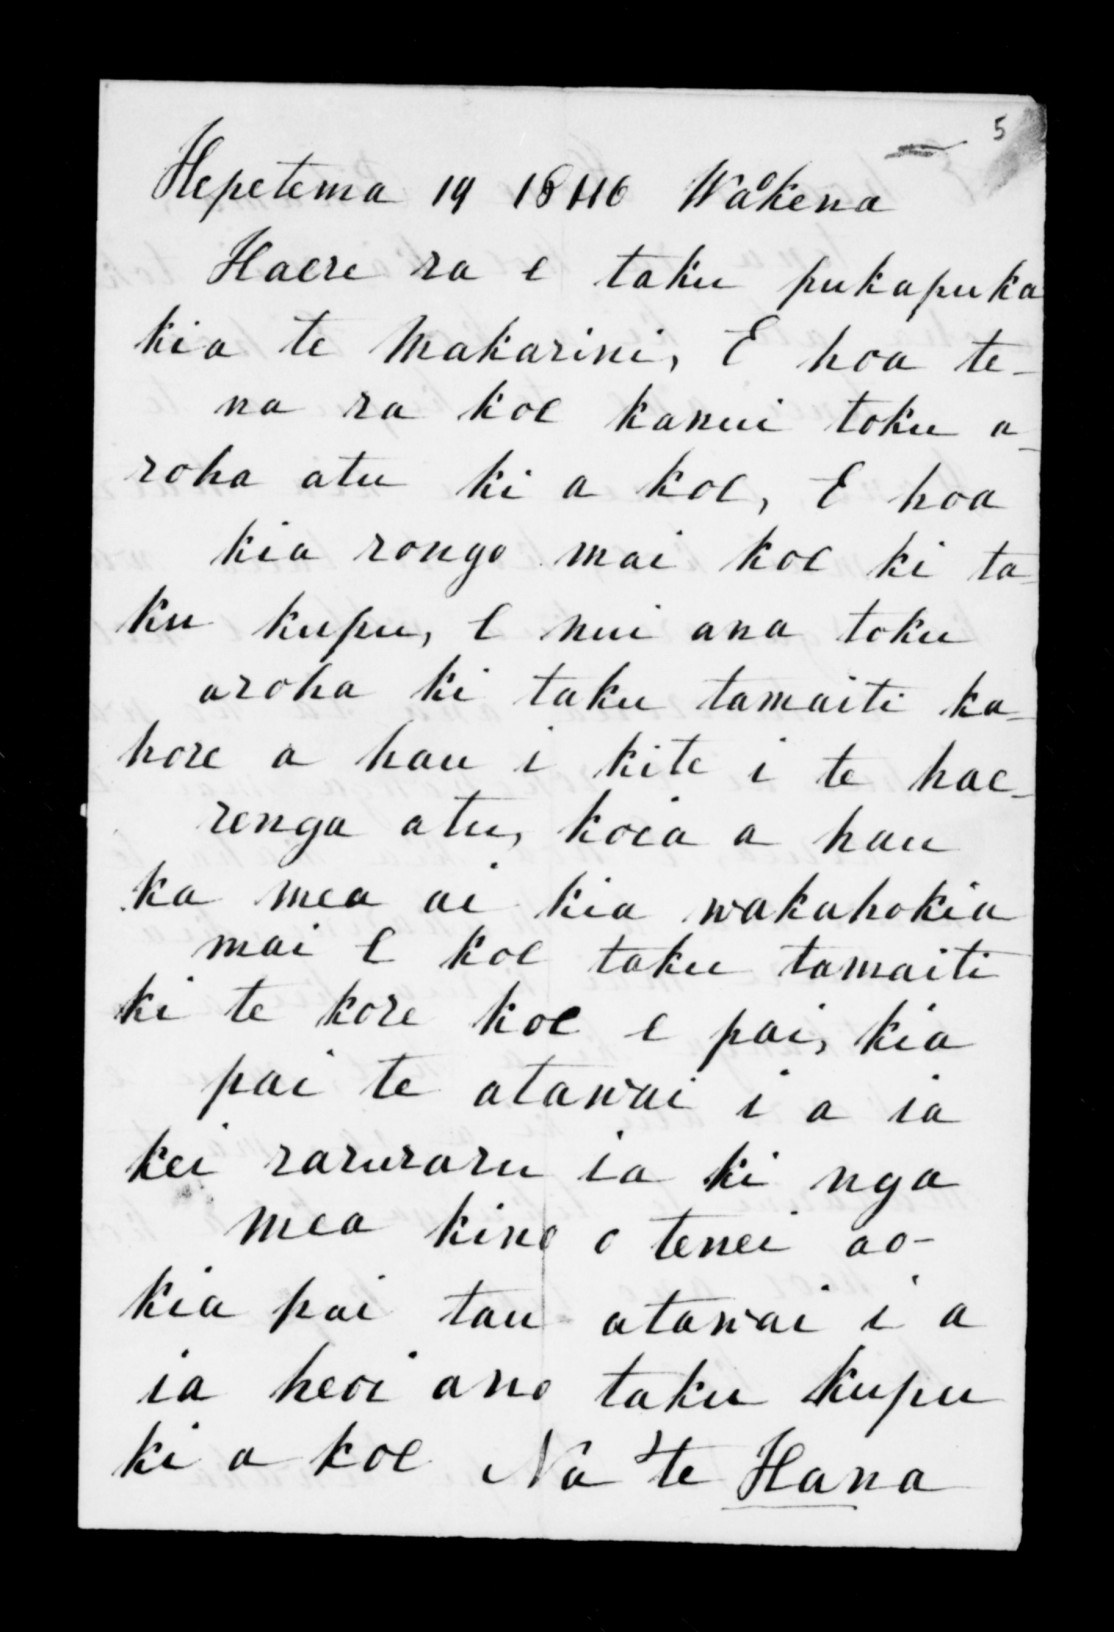 5
Hepetema 19 1846 Wakena
Haere ra e taku pukapuka
kia te Makarini, E hoa te-
na ra koe kanui toku a-
roha atu ki a koe, E hoa
kia rongo mai koe ki ta-
ku kupu, E nui ana toku
aroha ki taku tamaiti ka-
hore a hau i kite i te hae-
renga atu, koia a hau
ka mea ai kia wakahokia
mai E koe taku tamaiti
ki te kore koe e pai, kia
pai te atawai i a ia
kei raruraru ia ki nga
mea kino o tenei ao-
kia pai tau atawai i a
ia heoi ano taku kupu
ki a koe Na te Hana